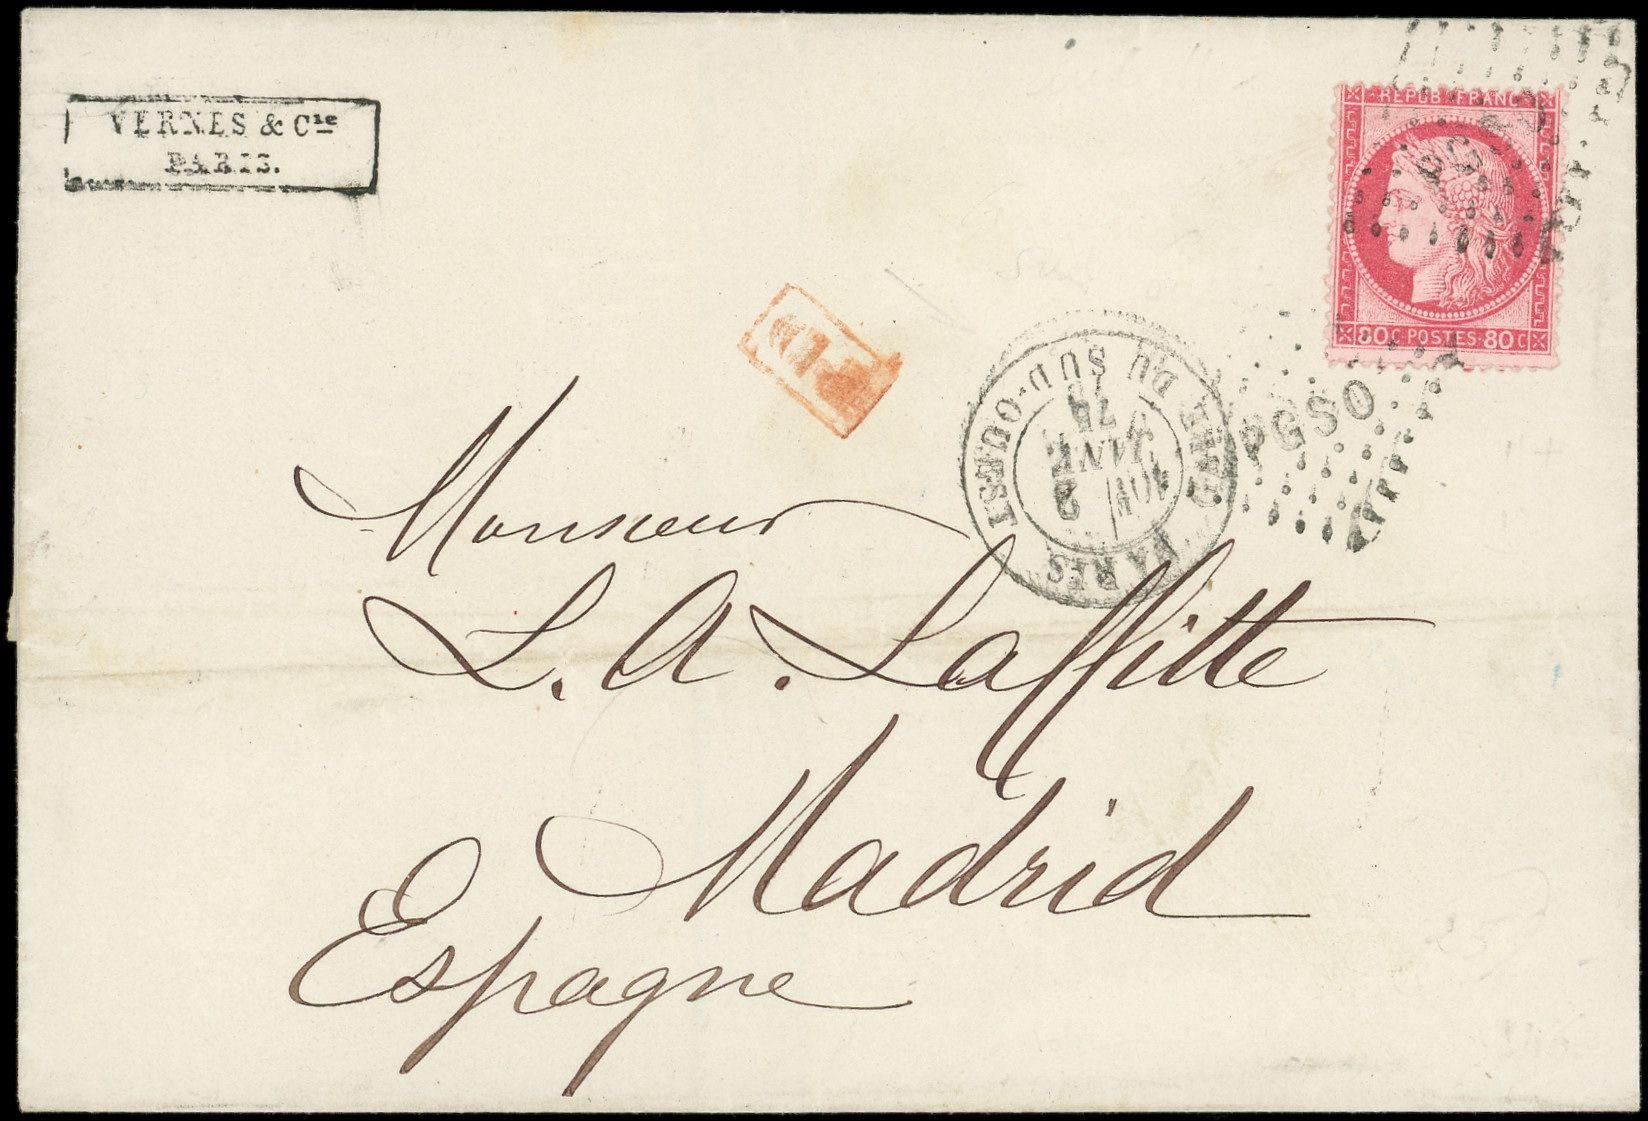 VERNES & Cie
PARIS.
REPUB·FRANC
80C·POSTES·80C
PD
PGSO
PARIS
GARE DU SUD-OUEST
2E
JANV
75
Monsieur
L. A. Laffitte
Madrid
Espagne